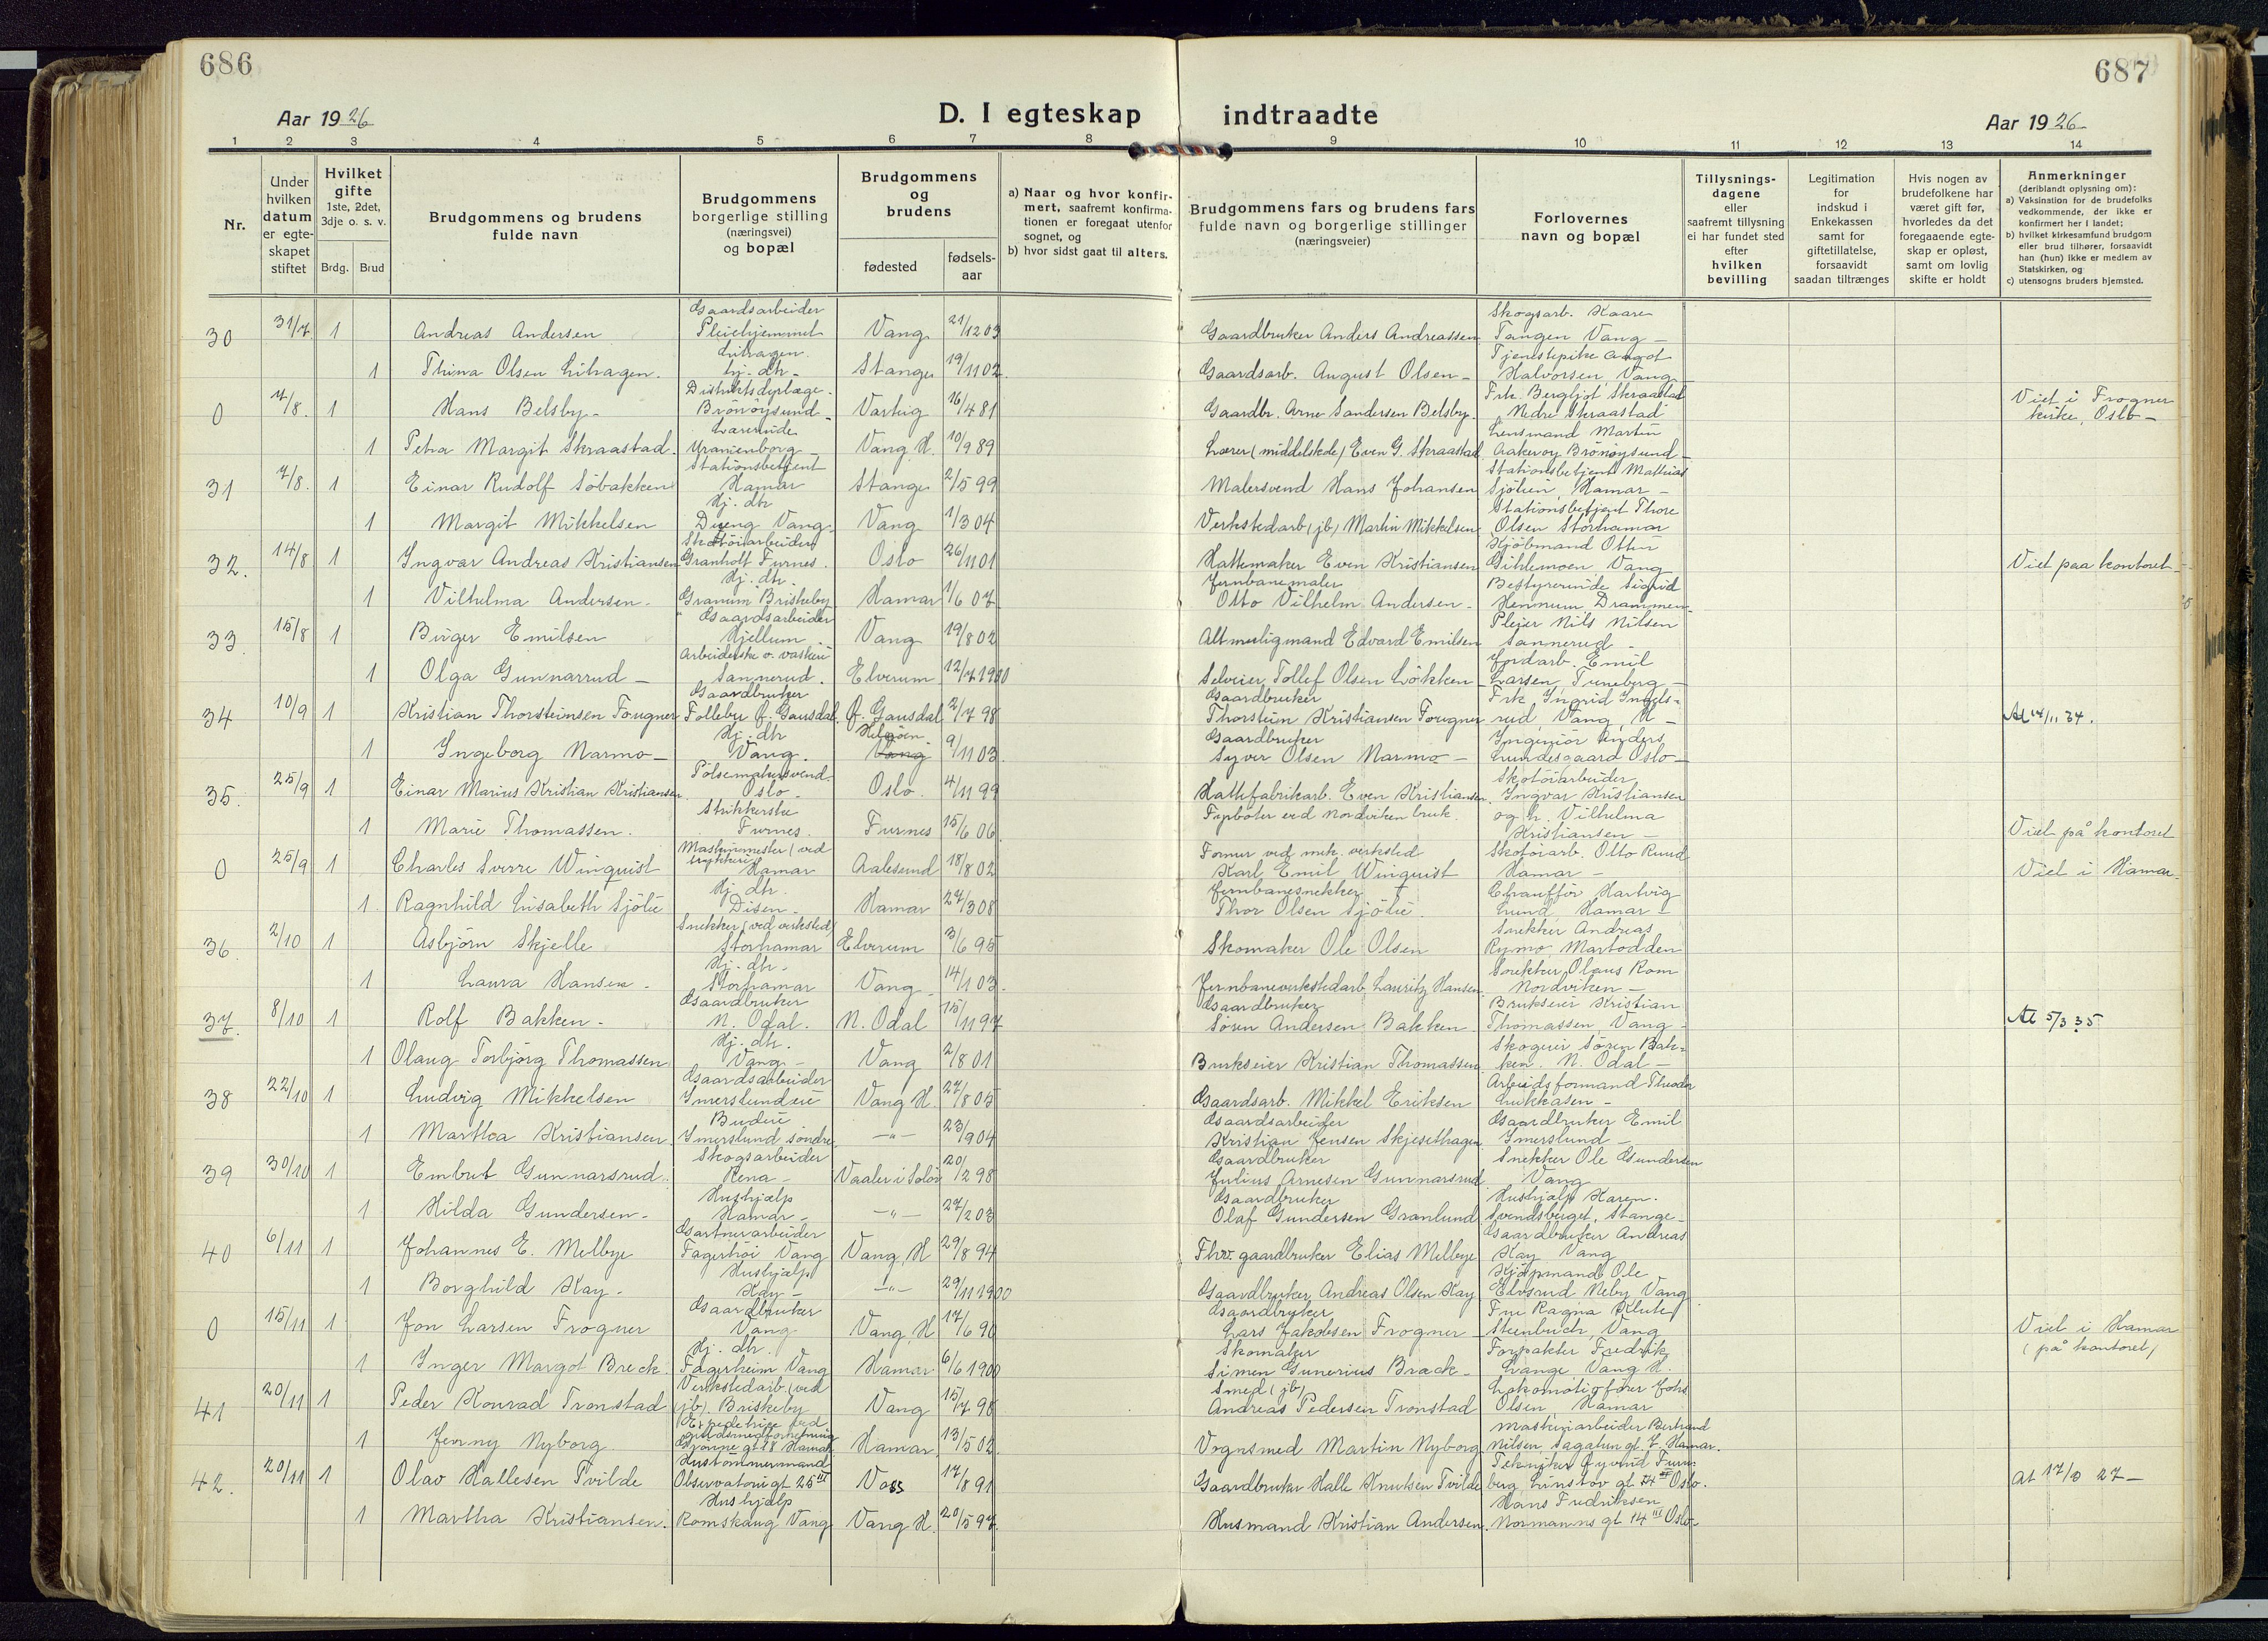 686
687
Aar 1926
D. I egteskap indtraadte
Aar 1926
1 2 3 4 5 6 7 8 9 10 11 12 13 14
Nr.
Under hvilken datum er egteskapet stiftet
Hvilket gifte 1ste, 2det, 3dje o. s. v.
Brdg. Brud
Brudgommens og brudens fulde navn
Brudgommens borgerlige stilling (næringsvei) og bopæl
Brudgommens og brudens
fødested
fødselsaar
a) Naar og hvor konfirmert, saafremt konfirmationen er foregaat utenfor sognet, og
b) hvor sidst gaat til alters.
Brudgommens fars og brudens fars fulde navn og borgerlige stillinger (næringsveier)
Forlovernes navn og bopæl
Tillysningsdagene eller saafremt tillysning ei har fundet sted efter hvilken bevilling
Legitimation for indskud i Enkekassen samt for giftetillatelse, forsaavidt saadan tiltrænges
Hvis nogen av brudefolkene har været gift før, hvorledes da det foregaaende egteskap er opløst, samt om lovlig skifte er holdt
Anmerkninger (deriblandt oplysning om):
a) Vaksination for de brudefolks vedkommende, der ikke er konfirmert her i landet;
b) hvilket kirkesamfund brudgom eller brud tilhører, forsaavidt han (hun) ikke er medlem av Statskirken, og
c) utensogns bruders hjemsted.
30 31/7 1 Andreas Andersen Gaardsarbeider Pleiehjemmet Vang 21/12 03 Gaardbruker Anders Andreassen Skogsarb. Kaare Tangen Vang
1 Thina Olsen Lihagen. Lihagen hj. dtr. Stange 19/11 02 Gaardsarb. August Olsen Tjenestepike Aagot Halvorsen Vang
0 7/8. 1 Hans Belsby Distriktsdyrlæge Brönöysund 16/4 81 Gaardbr. Arne Sandersen Belsby. Frk. Bergljot Skraastad Nedre Skraastad Viet i Frogner kirke, Oslo
1 Petra Margit Skraastad. Lærerinde Uranienborg Vang H. 10/9 89 Lærer (middelskole) Even G. Skraastad Lensmand Martin Aakerøy Brönöysund
31 7/8. 1 Einar Rudolf Söbakken Stationsbetjent Hamar Stange 2/5 99 Malersvend Hans Johansen Stationsbetjent Mathias Sjölien, Hamar
1 Margit Mikkelsen Hj. dtr Vang Vang 1/3 04 Verkstedarb (jb) Martin Mikkelsen Stationsbetjent Thore Olsen Storhamar
32. 14/8 1 Ingvar Andreas Kristiansen Skotöiarbeider Granholt Furnes. Oslo 26/11 01 Hattemaker Even Kristiansen Kjöbmand Otto Gihlemoen Vang Viet paa kontoret
1 Vilhelma Andersen Hj. dtr. Granum Briskeby Hamar 1/6 07 Jernbanemaler Otto Vilhelm Andersen Bestyrerinde Sigrid Hennum Drammen
33. 15/8 1 Birger Emilsen Gaardsarbeider Hjellum Vang 19/8 02 Altmuligmand Edvard Emilsen Pleier Nils Nilsen Sannerud
1 Olga Gunnarrud Arbeiderske v. vaskeri Sannerud. Elverum 12/7 1900 Selveier, Tollef Olsen Lökken Jordarb. Emil Larsen, Tuneberg
34 10/9 1 Kristian Thorsteinsen Fougner Gaardbruker Follebu Ö. Gausdal. Ö. Gausdal 2/7 98 Gaardbruker Thorstein Kristiansen Fougner Frk Ingrid Ingelsrud, Vang, H At 14/11 34.
1 Ingeborg Narmo Hj. dtr Vang. Helgöen Vang 9/11 03. Gaardbruker Syver Olsen Narmo Ingeniör Anders Lundesgaard Oslo
35. 25/9 1 Einar Marius Kristian Kristiansen Pölsemakersvend Oslo Oslo. 4/11 99 Hattefabrikarb. Even Kristiansen Skotöiarbeider Ingvar Kristiansen
1 Marie Thomassen. Strikkerske Furnes. Furnes 15/6 06 Fyrböter ved Nordviken bruk. og h. Vilhelma Kristiansen Viet på kontoret
0 25/9 1 Charles Sverre Winquist Maskinmester (ved trykkeri) Hamar Aalesund 18/8 02 Former ved mek. verksted Karl Emil Winquist Skotöiarb. Otto Ruud Hamar Viet i Hamar.
1 Ragnhild Lisabeth Sjölie Hj. dtr. Disen Hamar 27/3 08 Jernbanesnekker Thor Olsen Sjölie. Chaufför Hartvig Lund, Hamar
36. 2/10 1 Asbjörn Skjelle Snekker (ved verksted) Storhamar Elverum 3/6 95 Skomaker Ole Olsen Snekker Andreas Rymo Martodden
1 Laura Hansen Hj. dtr. Storhamar Vang 14/1 03. Jernbaneverkstedarb. Lauritz Hansen Snekker Olaus Rom Nordviken
37. 8/10 1 Rolf Bakken Gaardbruker N. Odal. N. Odal 15/11 97 Gaardbruker Sören Andersen Bakken Brukseier Kristian Thomassen, Vang At 5/3 35
1 Olaug Torbjörg Thomassen Hj. dtr. Vang Vang 2/8 01 Brukseier Kristian Thomassen Skogeier Sören Bakken. N. Odal
38 22/10 1 Ludvig Mikkelsen Gaardsarbeider Ymerslundeie Vang H. 27/8 05 Gaardsarb. Mikkel Eriksen Arbeidsformand Theodor Lukkasen
1 Marthea Kristiansen Budeie Ymerslund söndre —"— 23/9 04 Gaardsarbeider Kristian Jensen Skjesethagen Gaardbruker Emil Ymerslund
39 30/10 1 Embret Gunnarsrud. Skogsarbeider Rena Vaaler i Solör 20/12 98 Gaardbruker Julius Arnesen Gunnarsrud Snekker Ole Gundersen Vang
1 Hilda Gundersen Hushjælp Hamar —"— 27/2 03 Gaardbruker Olaf Gundersen Granlund Hushjælp Karen. Svendsberget, Stange
40 6/11 1 Johannes E. Melbye Gartnerarbeider Fagerhöi Vang Vang, H 29/8 94 Fhv. gaardbruker Elias Melbye Gaardbruker Andreas Kay Vang
1 Borghild Kay Hushjælp Kay —"— 29/11 1900 Gaardbruker Andreas Olsen Kay Kjöpmand Ole Elvsand Neby Vang
0 15/11 1 Jon Larsen Frogner Gaardbruker Vang Vang, H 17/6 90 Gaardbruker Lars Jakobsen Frogner Fru Ragna Klute Steenbuch, Vang Viet i Hamar (på kontoret)
1 Inger Margot Breck. Hj. dtr. Fagerheim Vang Hamar 6/6 1900 Skomaker Simen Gunerius Brack Forpakter Fredrik Lange Vang H.
41 20/11 1 Peder Konrad Tronstad Verkstedarb. (ved jb). Briskeby Vang 15/7 98 Smed (jb) Andreas Pedersen Tronstad Lokomotivförer Johs Olsen, Hamar
1 Jenny Nyborg Grönne gt 78 Hamar Hamar 13/5 02 Vognsmed Martin Nyborg Maskinarbeider Bertrand Nilsen, Sagatun gt. 7. Hamar.
42. 20/11 1 Olav Hallesen Tvilde Hustömmermand Observatorie gt 25 III Voss 17/8 91 Gaardbruker Halle Knutsen Tvilde Tekniker Öyvind Furuberg, Linstov gt Oslo. at 17/8 27
1 Martha Kristiansen. Hushjælp Romskaug Vang Vang H. 20/5 97 Husmand Kristian Andersen. Hans Fredriksen Normanns gt 14 III Oslo